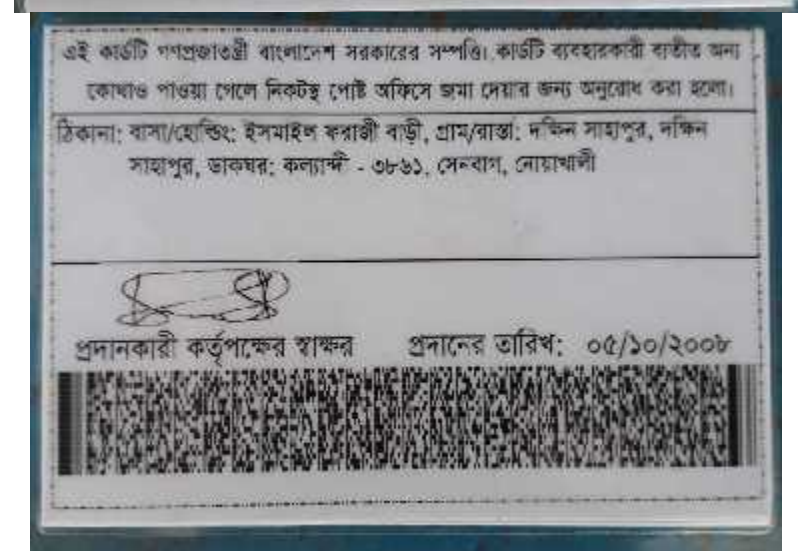 এই কার্ডটি গণপ্রজাতন্ত্রী বাংলাদেশ সরকারের সম্পত্তি। কার্ডটি ব্যবহারকারী ব্যতীত অন্য
কোথাও পাওয়া গেলে নিকটস্থ পোষ্ট অফিসে জমা দেয়ার জন্য অনুরোধ করা হলো।
ঠিকানা: বাসা/হোল্ডিং: ইসমাইল ফরাজী বাড়ী, গ্রাম/রাস্তা: দক্ষিন সাহাপুর, দক্ষিন
সাহাপুর, ডাকঘর: কল্যান্দী - ৩৮৬১, সেনবাগ, নোয়াখালী
প্রদানকারী কর্তৃপক্ষের স্বাক্ষর প্রদানের তারিখ: ০৫/১০/২০০৮